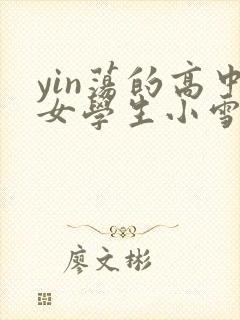 yin蕩的高中
女學生小雪
廖文彬